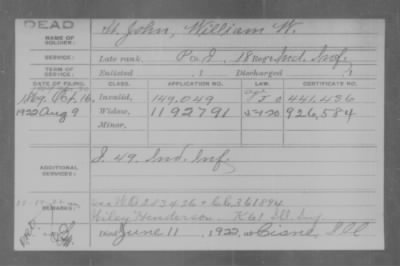 DEAD
NAME OF SOLDIER: St. John, William W.
SERVICE: Late rank, Pvt. , 18 Reg't Ind. Inf.
TERM OF SERVICE: Enlisted , 1 Discharged , 1
DATE OF FILING. CLASS. APPLICATION NO. CERTIFICATE NO.
16. Invalid, 149,049 441,486
1922 Aug 9 Widow, 1192791 926,584
Minor,
ADDITIONAL SERVICES: 49. Ind. Inf.
REMARKS: W.O. 283426 + C.C. 361894
Giley Henderson K 61 Ill. Inf.
Died June 11, 1922, at Cisne, Ill